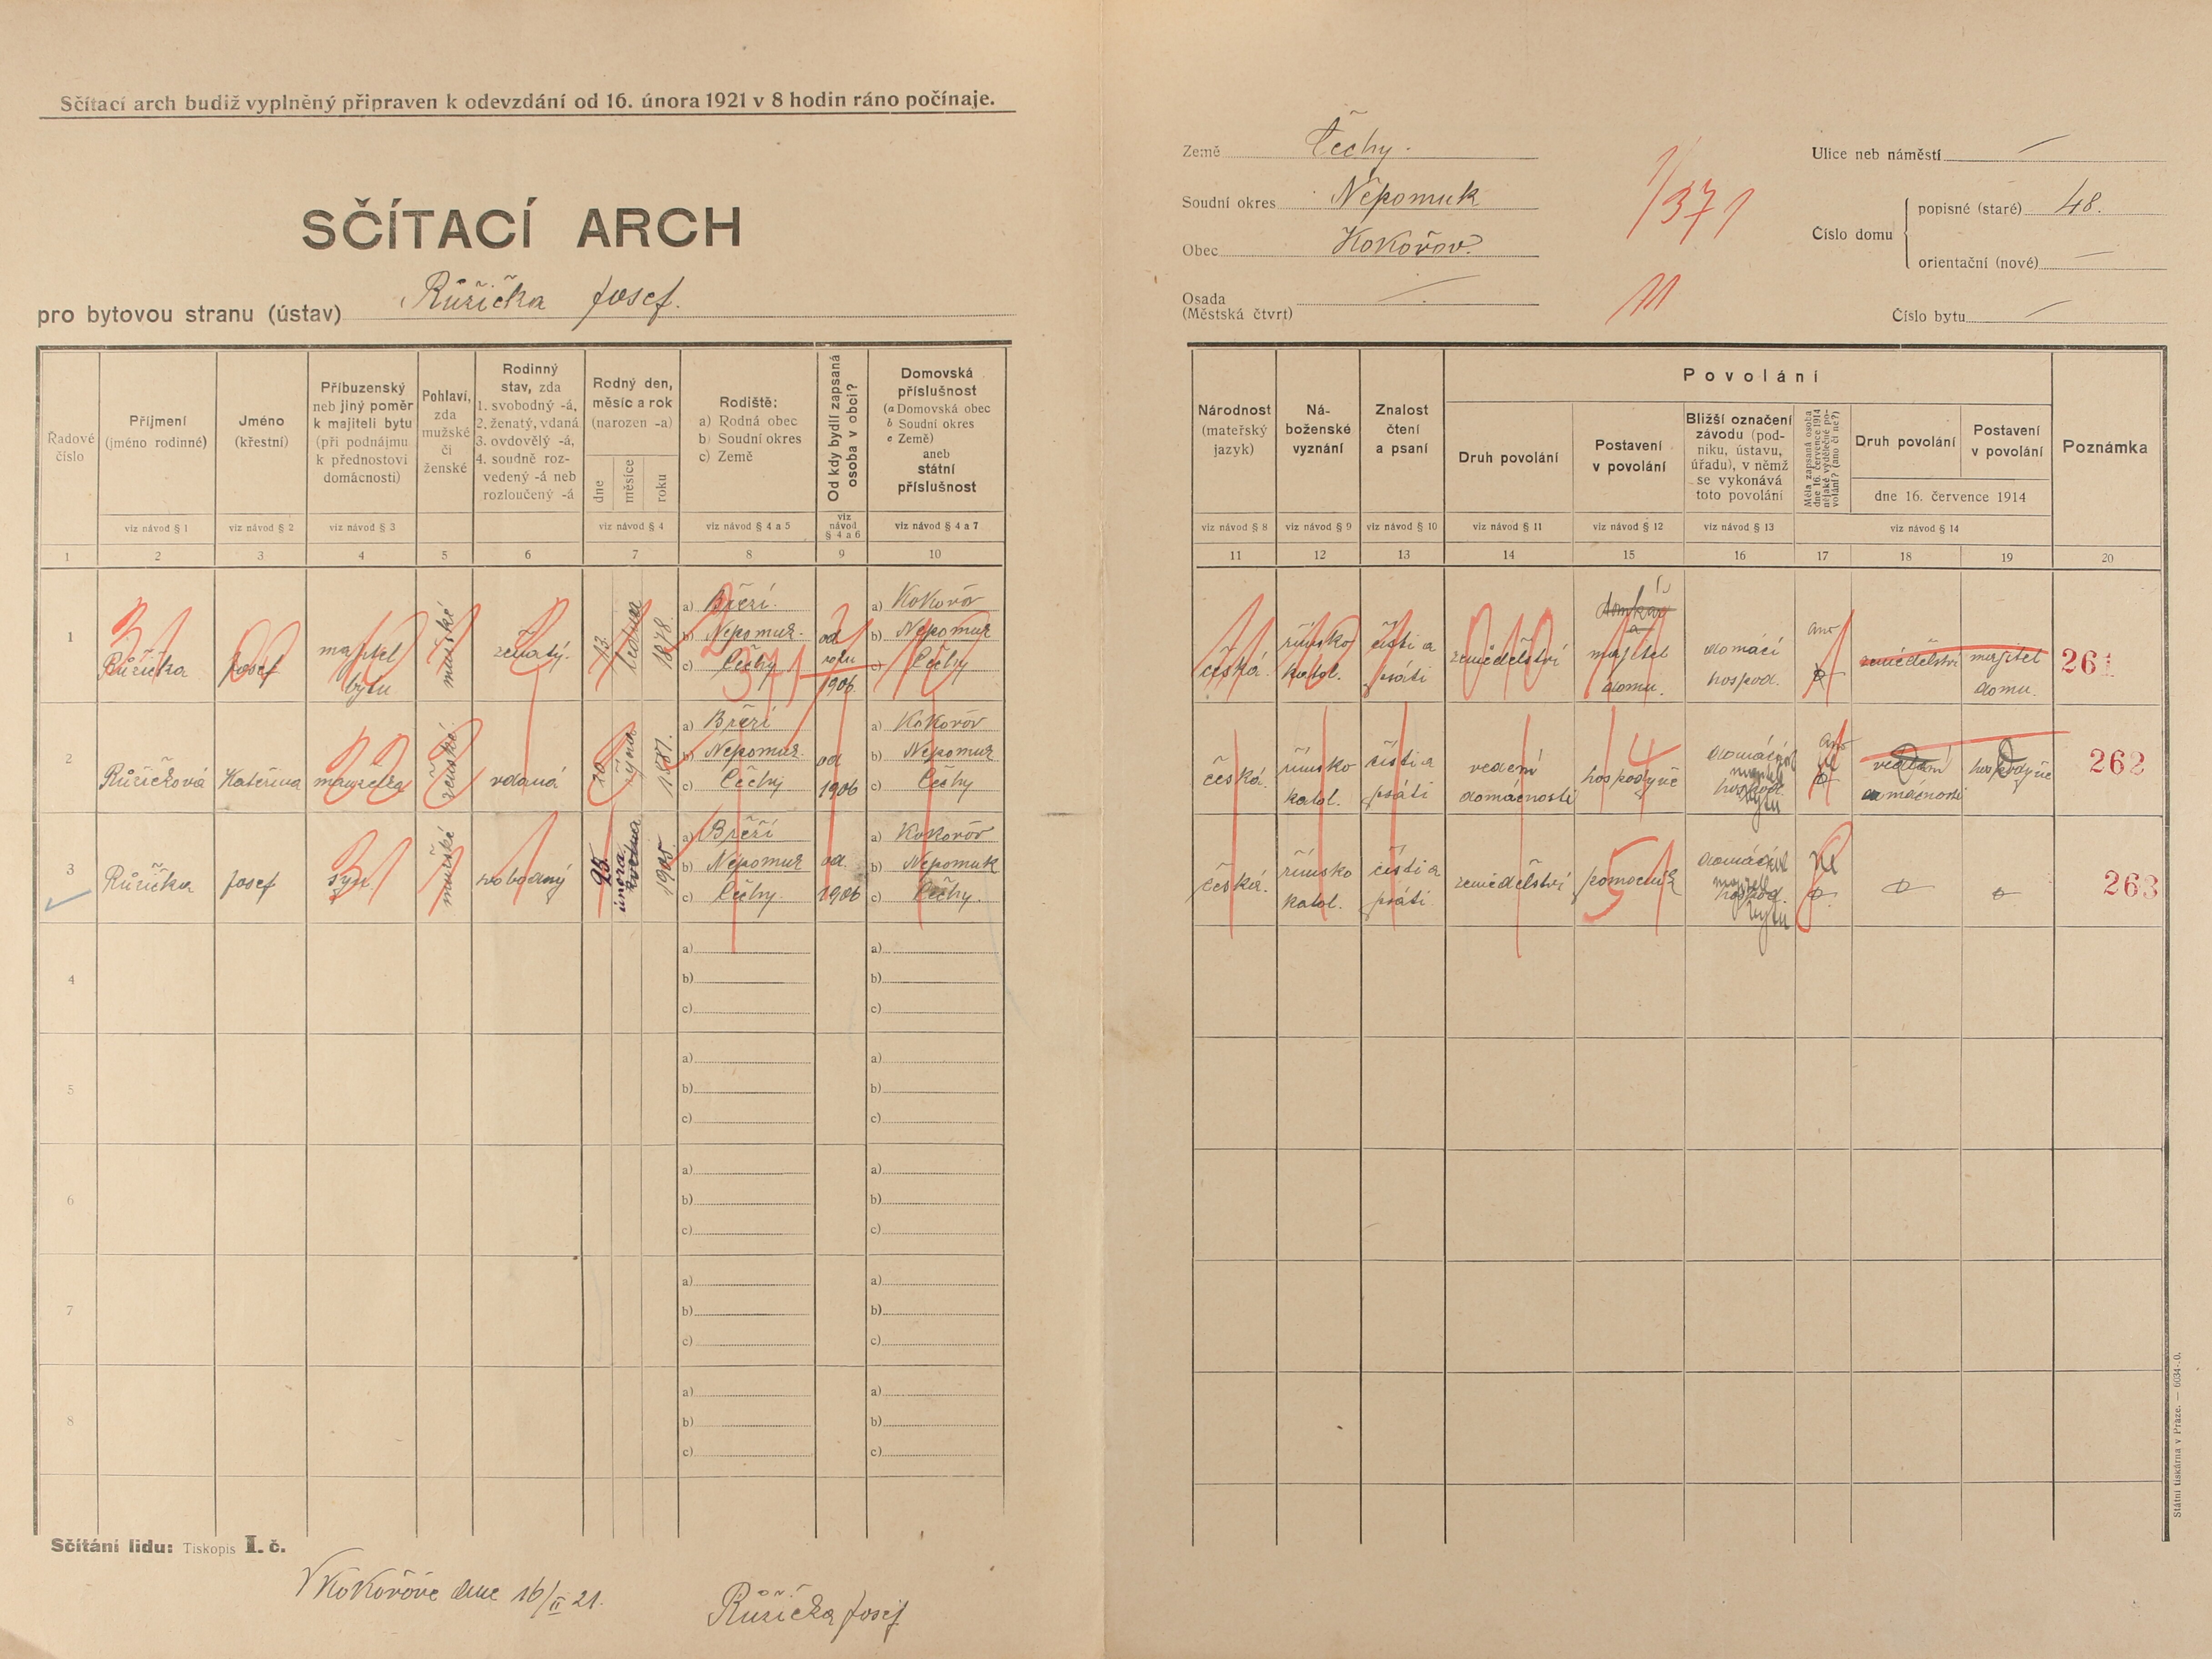 Sčítací arch budiž vyplněný připraven k odevzdání od 16. února 1921 v 8 hodin ráno počínaje.
SČÍTACÍ ARCH
pro bytovou stranu (ústav) Růžička Josef.
Země Čechy.
Soudní okres Nepomuk
Obec Kokořov.
Osada
(Městská čtvrt)
1/371
11
Ulice neb náměstí
Číslo domu
popisné (staré) 48.
orientační (nové)
Číslo bytu
Řadové číslo
Příjmení (jméno rodinné)
Jméno (křestní)
Příbuzenský neb jiný poměr k majiteli bytu (při podnájmu k přednostovi domácnosti)
Pohlaví, zda mužské či ženské
Rodinný stav, zda 1. svobodný -á, 2. ženatý, vdaná 3. ovdovělý -á, 4. soudně rozvedený -á neb rozloučený -á
Rodný den, měsíc a rok (narozen -a)
dne
měsíce
roku
Rodiště: a) Rodná obec b) Soudní okres c) Země
Od kdy bydlí zapsaná osoba v obci?
Domovská příslušnost (a Domovská obec b Soudní okres c Země) aneb státní příslušnost
viz návod § 1
viz návod § 2
viz návod § 3
viz návod § 4
viz návod § 4 a 5
viz návod § 4 a 6
viz návod § 4 a 7
1 2 3 4 5 6 7 8 9 10
Národnost (mateřský jazyk)
Náboženské vyznání
Znalost čtení a psaní
Povolání
Druh povolání
Postavení v povolání
Bližší označení závodu (podniku, ústavu, úřadu), v němž se vykonává toto povolání
Měla zapsaná osoba dne 16. července 1914 nějaké výdělečné povolání? (ano či ne?)
Druh povolání
Postavení v povolání
dne 16. července 1914
Poznámka
viz návod § 8
viz návod § 9
viz návod § 10
viz návod § 11
viz návod § 12
viz návod § 13
viz návod § 14
11 12 13 14 15 16 17 18 19 20
1
Růžička
Josef
majitel bytu
mužské
ženatý.
13.
ledna
1878.
a) Břězí.
b) Nepomuk.
c) Čechy
od roku 1906.
a) Kokořov
b) Nepomuk
c) Čechy
česká.
římsko katol.
čísti a psáti
zemědělství
domkář
a
majitel domu.
domácí hospod.
ano
zemědělství
majitel domu.
261
2
Růžičková
Kateřina
manželka
ženské.
vdaná
20
října
1881.
a) Břězí
b) Nepomuk.
c) Čechy
od 1906
a) Kokořov
b) Nepomuk
c) Čechy
česká.
římsko katol.
čísti a psáti
vedení domácnosti
hospodyně
ano
vedení domácnosti
hospodyně
262
3
Růžička
Josef
syn.
mužské
svobodný
25.
února
1905.
a) Břěží
b) Nepomuk
c) Čechy.
od 1906
a) Kokořov
b) Nepomuk
c) Čechy.
česká.
římsko katol.
čísti a psáti.
zemědělství
pomocník
ne
263
4
a) a)
b) b)
c) c)
5
a) a)
b) b)
c) c)
6
a) a)
b) b)
c) c)
7
a) a)
b) b)
c) c)
8
a) a)
b) b)
c) c)
Sčítání lidu: Tiskopis I. č.
V Kokořově dne 16/II 21.
Růžička Josef
Státní tiskárna v Praze. — 6034-.0.